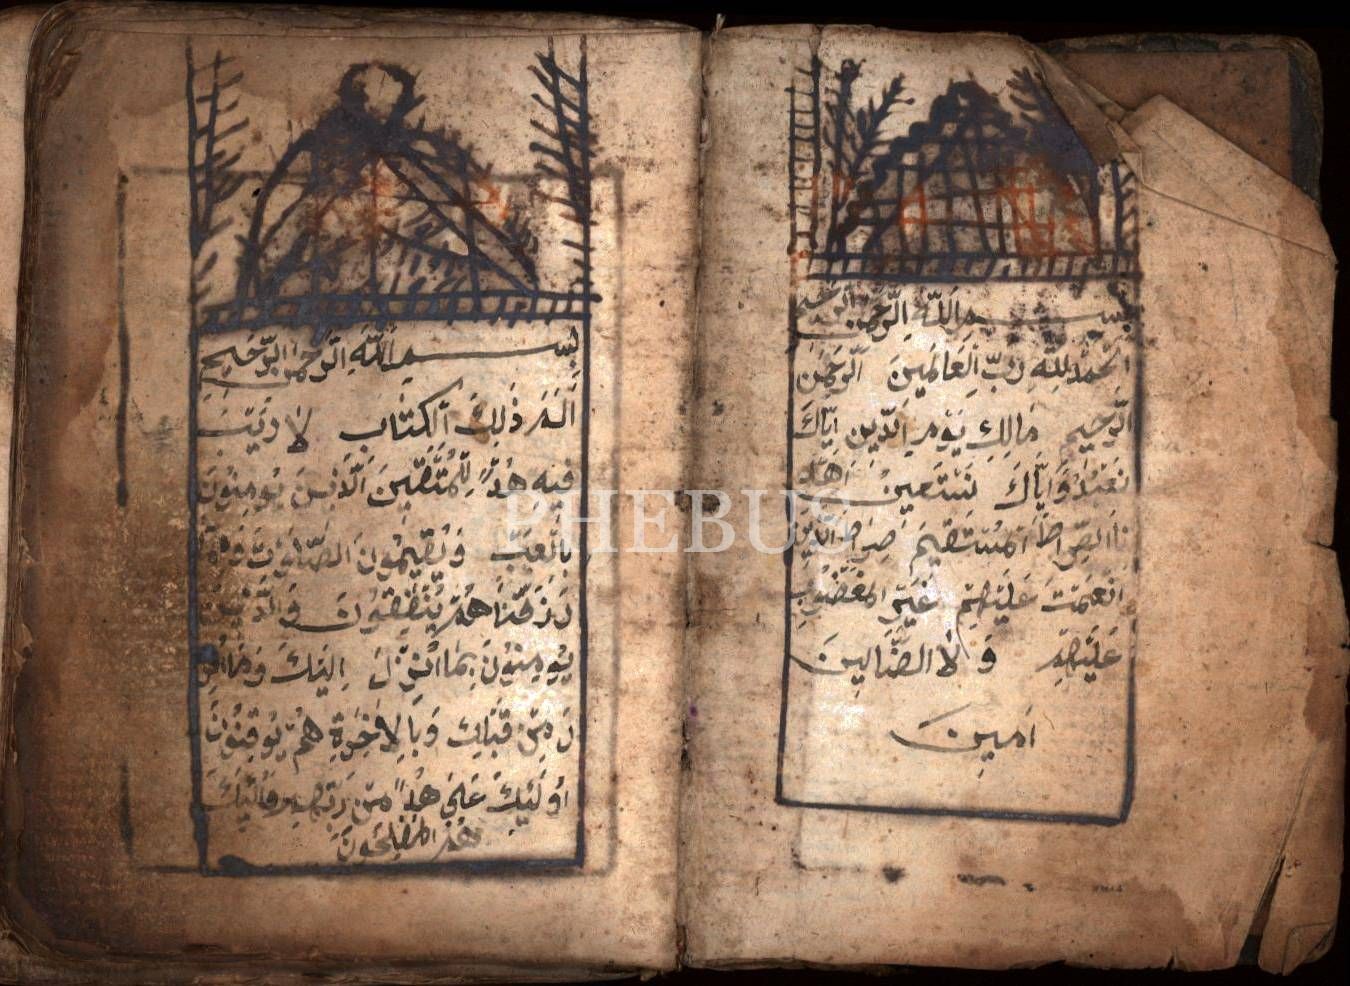 بِسْمِ اللّٰهِ الرَّحْمٰنِ الرَّحِيمِ
اَلْحَمْدُ لِلّٰهِ رَبِّ الْعَالَمِينَ الرَّحْمٰنِ
الرَّحِيمِ مَالِكِ يَوْمِ الدِّينِ اِيَّاكَ
نَعْبُدُ وَاِيَّاكَ نَسْتَعِينُ اِهْدِ
نَا الصِّرَاطَ الْمُسْتَقِيمَ صِرَاطَ الَّذِينَ
اَنْعَمْتَ عَلَيْهِمْ غَيْرِ الْمَغْضُوبِ
عَلَيْهِمْ وَلَا الضَّالِّينَ
اٰمِينَ
بِسْمِ اللّٰهِ الرَّحْمٰنِ الرَّحِيمِ
الٓمٓ ذٰلِكَ الْكِتَابُ لَا رَيْبَ
فِيهِ هُدًا لِلْمُتَّقِينَ الَّذِينَ يُومِنُونَ
بِالْغَيْبِ وَيُقِيمُونَ الصَّلٰوتَ وَمِمَّا
رَزَقْنَا هُمْ يُنْفِقُونَ وَالَّذِينَ
يُومِنُونَ بِمَا اُنْزِلَ اِلَيْكَ وَمَا اُنْزِ
لَ مِنْ قَبْلِكَ وَبِالْاَخِرَةِ هُمْ يُوقِنُونَ
اُولَئِكَ عَلَى هُدًا مِنْ رَبِّهِمْ وَاُلَئِكَ
هُمُ الْمُفْلِحُونَ
PHEBUS